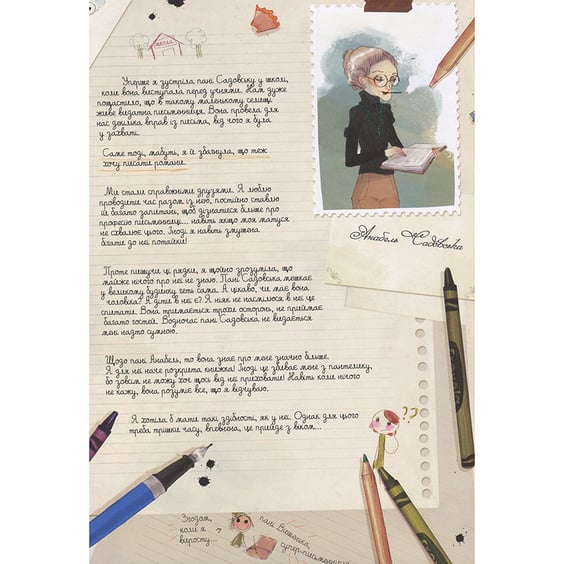 ШКОЛА
Уперше я зустріла пані Садовську у школі,
коли вона виступала перед учнями. Нам дуже
пощастило, що в такому маленькому селищі
живе видатна письменниця. Вона провела для
нас декілька вправ із письма, від чого я була
у захваті.
Саме тоді, мабуть, я й збагнула, що теж
хочу писати романи.
Ми стали справжніми друзями. Я люблю
проводити час разом із нею, постійно ставлю
їй багато запитань, щоб дізнатися більше про
професію письменниці... навіть якщо моя матуся
не схвалює цього. Іноді я навіть змушена
бігати до неї потайки!
Проте пишучи ці рядки, я щойно зрозуміла, що
майже нічого про неї не знаю. Пані Садовська мешкає
у великому будинку геть сама. А цікаво, чи має вона
чоловіка? А діти в неї є? Я ніяк не насмілюся в неї це
спитати. Вона тримається трохи осторонь, не приймає
багато гостей. Водночас пані Садовська не видається
мені надто сумною.
Щодо пані Анабель, то вона знає про мене значно більше.
Я для неї наче розкрита книжка! Іноді це збиває мене з пантелику,
бо зовсім не можу хоч щось від неї приховати! Навіть коли нічого
не кажу, вона розуміє все, що я відчуваю.
Я хотіла б мати такі здібності, як у неї. Однак для цього
треба трішки часу, впевнена, це прийде з віком...
Анабель Садовська
??
Згодом,
коли я
виросту...
пані Вишенька,
супер-письменниця